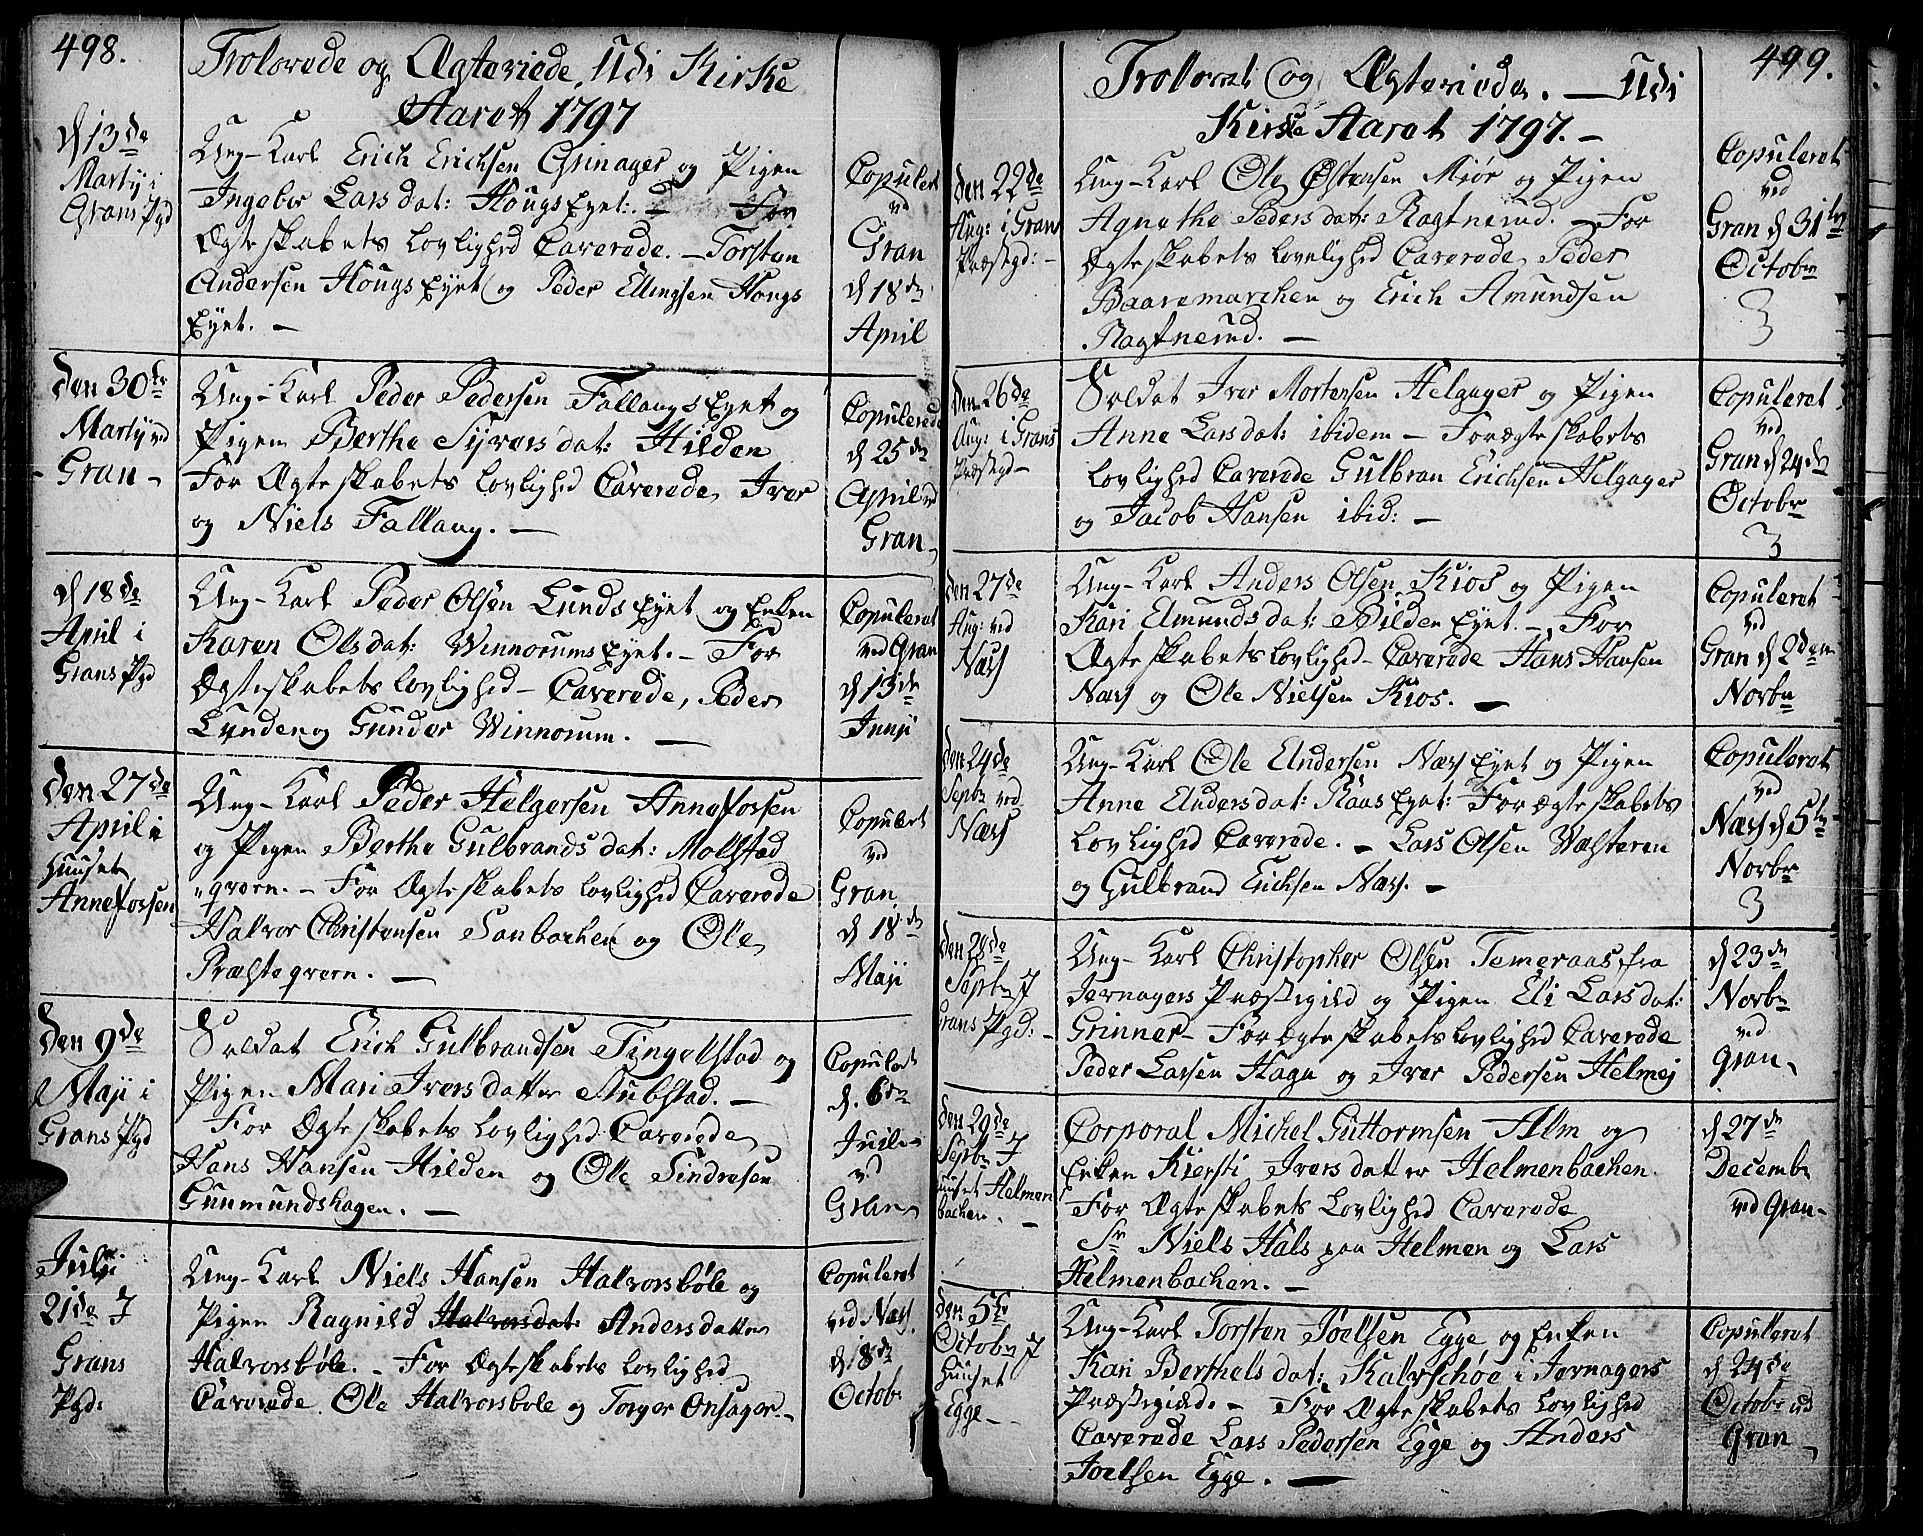 498.
Trolovede og Ægteviede, Udi Kirke
Aaret 1797
d 13de
Martÿ i
Grans Pgd
Ung-Karl Erich Erichsen Grinager og Pigen
Ingebor Lars dat: Hougs Eyet. - For
Ægteskabets Lovlighed Caverede. - Torsten
Andersen Hougs Eyet og Peder Ellingsen Hougs
Eyet. -
Copuleret
ved
Gran
d 18de
April
Den 30te
Martÿ ved
Gran -
Ung-Karl Peder Pedersen Fallangs Eyet og
Pigen Berthe Syvers dat: Hilden
For Ægteskabets Lovlighed Caverede, Iver
og Niels Fallang. -
Copulerede
d 25de
April ved
Gran
d 18de
April i
Grans Pgd
Ung-Karl Peder Olsen Lunds Eyet og Enken
Karen Olsdat: Winnorums Eyet. - For
Ægteskabets Lovlighed - Caverede, Peder
Lunden og Gunder Winnorum. -
Copuleret
ved Gran
d 13de
Junÿ
Den 27de
April i
Huuset
Annefossen
Ung-Karl Peder Helgersen Annefossen
og Pigen Berthe Gulbrands dat: Mollstad
"qvern. - For Ægteskabets Lovlighed Caverede
Halvor Christensen Sanbachen og Ole
Præsteqvern. -
Copuleret
ved
Gran
d 18de
Maji
Den 9de
Maji i
Grans Pgd
Soldat Erich Gulbrandsen Tingelstad og
Pigen Mari Ivers datter Stubstad. -
For Ægteskabets Lovlighed Caverede
Hans Hansen Hilden og Ole Sindresen
Gunmundshagen. -
Copuleret
d. 6te
Julÿ
ved
Gran
Julÿ
21de I
Grans
Pgd:
Ung-Karl Niels Hansen Halvorsbøle og
Pigen Ragnild Halvorsdat: Andersdatter
Halvorsbøle. - For Ægteskabets Lovlighed
Caverede Ole Halvorsbøle og Torger Onsager. -
Copuleret
ved Næss
d 18de
Octobr
499.
Trolovet og Ægteviede. - Udi
Kirke Aaret 1797. -
den 22de
Aug: i Gran
Præstegd: -
Ung-Karl Ole Østensen Miør og Pigen
Agnethe Peders dat: Ragtnerud. - For
Ægteskabets Lovlighed Caverede, Peder
Baaremarchen og Erich Amundsen
Ragtnerud. -
Copuleret
ved
Gran d 31te
Octobr
3
Den 26de
Aug: i Grans
Præstegd -
Soldat Iver Mortensen Helgager og Pigen
Anne Lars dat: ibidem - For Ægteskabets
Lovlighed Caverede Gulbran Erichsen Helgager
og Jacob Hansen ibid: -
Copuleret
ved
Gran d 24de
Octobr
3
den 27de
Aug: ved
Næss
Ung-Karl Anders Olsen Kios og Pigen
Kari Elmunds dat: Bilden Eyet. - For
Ægteskabets Lovlighed - Caverede Hans Hansen
Næss og Ole Nielsen Kios. -
Copuleret
ved
Gran d 2den
Novbr
den 24de
Septbr ved
Næss
Ung-Karl Ole Endersen Næss Eyet og Pigen
Anne Enders dat: Raas Eyet: For Ægteskabets
Lovlighed Caverede. - Lars Olsen Wæsteren
og Gulbrand Erichsen Næss. -
Copulleret
ved
Næss d 5te
Novbr
3
den 28de
Septbr I
Grans Pgd: -
Ung-Karl Christopher Olsen Temeraas fra
Jevnagers Præstegield og Pigen Eli Lars dat:
Grinner - For Ægteskabets Lovlighed Caverede
Peder Larsen Hagn og Iver Pedersen Helmej
d 23de
Novbr
ved
Gran
den 29de
Septbr I
Huuset Helmen
bachen. -
Corporal Michel Guttormsen Alm og
Enken Kiersti Ivers datter Helmenbachen
For Ægteskabets Lovlighed Caverede
Sr Niels Hals paa Helmen og Lars
Helmenbachen. -
d 27de
Decembr
ved Gran -
den 5te
Octobr I
Huuset
Egge -
Ung-Karl Torsten Joelsen Egge og Enken
Kari Berthels dat: Kalvschøe i Jevnagers
Præstegield. - For Ægteskabets Lovlighed
Caverede Lars Pedersen Egge og Anders
Joelsen Egge. -
Copulleret
d 24de
Octobr ved
Gran